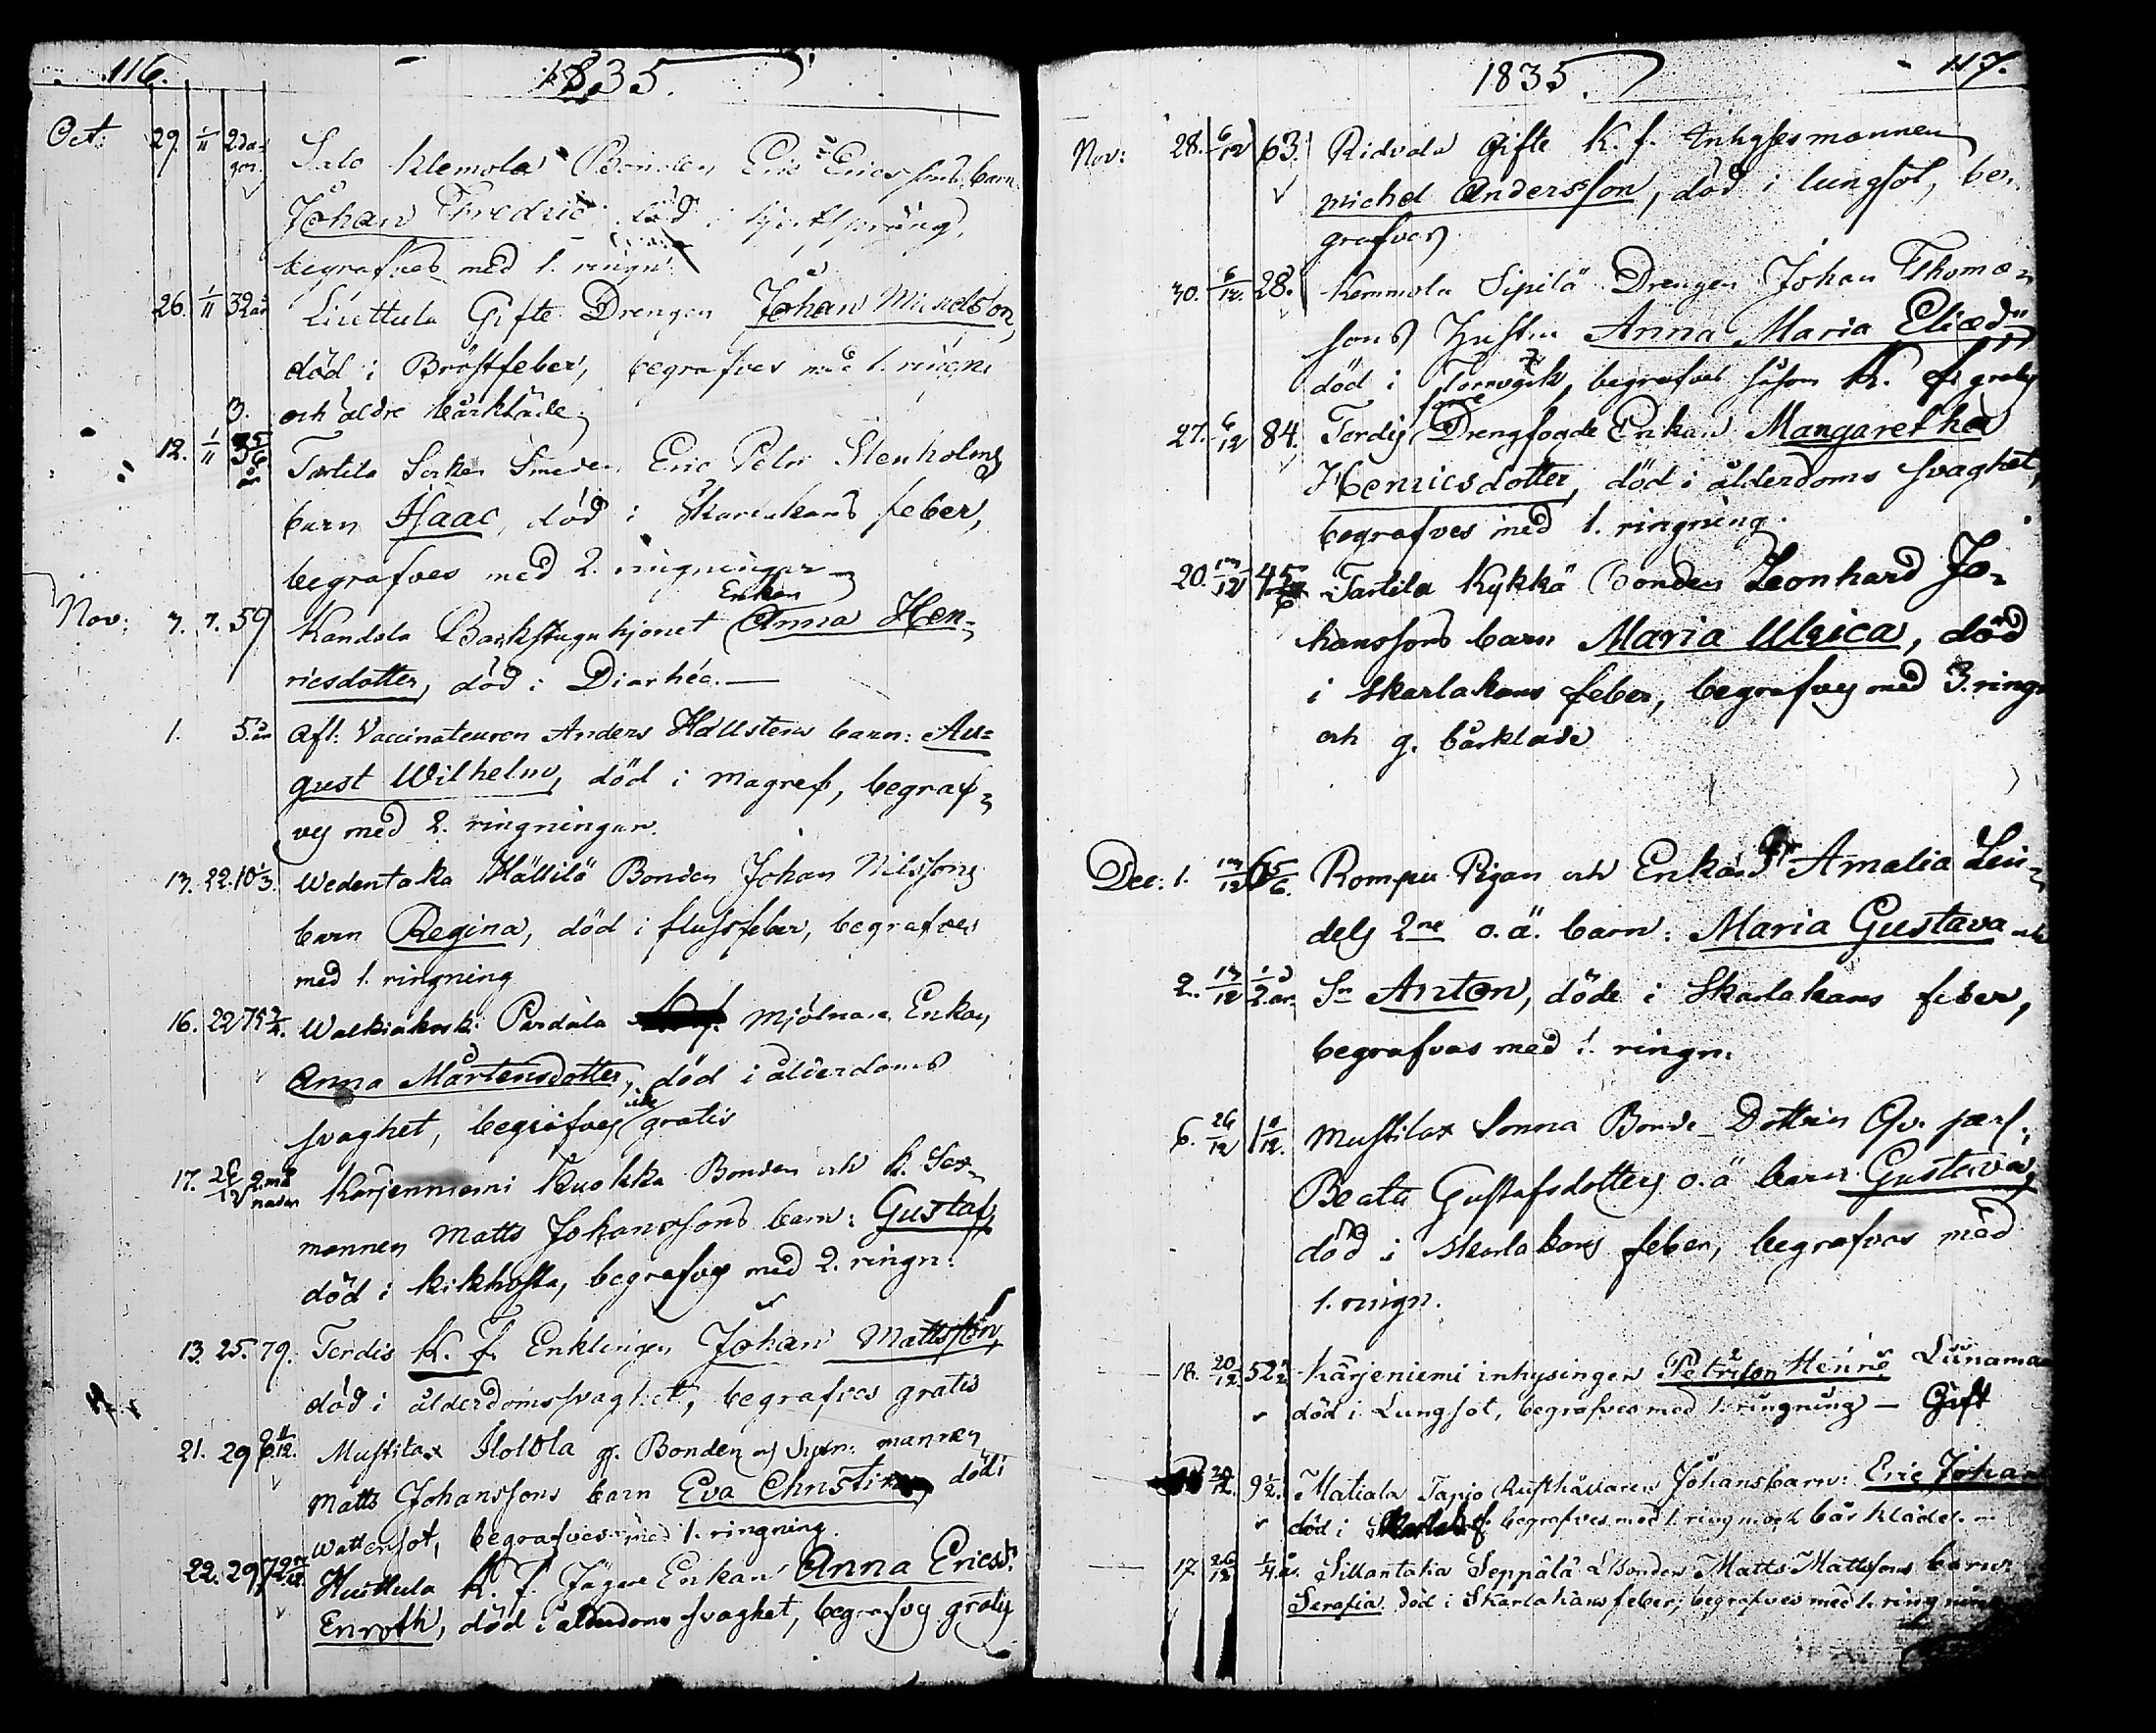 116.
1835.
Oct: 29. 1/11 2 da-
gar. Salo Klemola Bonden Eric Ericssons barn
Johan Fredric död i hjertsprång,
begrafves med 1. ringn:
26. 1/11 32 år Liuttula Gifte Drengen Johan Mickelsson,
död i Bröstfeber, begrafves med 1. ringn:
och äldre bårkläde
12. 1/11 Tarttila Sorkes Smeden Eric Petri Stenholms
barn Isaac, död i Skarlakans feber,
begrafves med 2. ringningar
Enkan
Nov: 7. 7. 59 Kandola Backstuguhjonet Anna Hen-
ricsdotter, död i Diarhée.—
1. 5. år Afl: Vaccinateuren Anders Hällstens barn: Au=
gust Wilhelm, död i magref, begraf-
ves med 2. ringningar.
13. 22. 10 1/3. Wedentaka Hällilä Bonden Johan Nilssons
barn Regina, död i flussfeber, begrafves
med 1. ringning
16. 22 75 3/4. Walkiakoski Pardala Mjölnare Enkan
Anna Mårtensdotter, död i ålderdoms
svaghet, begrafves icke gratis
17. 2 må
nader Karjenniemi Kuokka Bonden och k. Sex-
mannen Matts Johanssons barn: Gustaf,
död i kikhosta, begrafves med 2. ringn:
13. 25. 79. Terdis K. f. Enklingen Johan Mattsson,
död i ålderdomssvaghet, begrafves gratis
21. 29 6 11/12. Mustila Iloltla gr. Bonden och Sexm: mannen
Matts Johanssons barn Eva Christina, död i
Wattensot, begrafves med 1. ringning.
22. 29 72 Huittula K. f. Jägare Enkan Anna Ericsd:
Enroth, död i ålderdoms svaghet, begrafves gratis
117.
1835.
Nov: 28. 6/12 63. Ridvala Gifte K. f. Inhysesmannen
Michel Andersson, död i lungsot, be-
grafves
30. 6/12. 28. Kemmola Sipilä Drengen Johan Thomas-
sons hustru Anna Maria Eliæd:
död i , begrafves såsom K. f. gratis
27. 6/12 84. Terdis Drengfogde Enkan Margaretha
Henricsdotter, död i ålderdoms svaghet,
begrafves med 1. ringning.
20. 13/12 4 5/6 Tartila Kykkä Bonden Leonhard Jo-
hanssons barn Maria Ulrica, död
i skarlakans feber, begrafves med 3. ringn
och g. bårkläde
Dec: 1. 13/12 6 5/6. Rompu Pigan och Enkan Amalia Lin-
dels 2ne o. ä. barn: Maria Gustava och
2. 13/12 1/2. år Sn Anton, döde i Skarlakans feber,
begrafvas med 1. ringn:
6. 26/12 1 Mustila Sonna Bonde-Dottren Qv. pers.
Beata Gustafsdotters o. ä barn Gustava,
död i skarlakans feber, begrafvas med
1. ringn.
18. 20/12. 52 Kärjeniemi inhysingen Petrisson Henric Liinamaa
död i Lungsot, begrafves med 1. ringning — Gift
20/12. 9 1/2. Matiala Tapio Rusthållaren Johans barn: Eric Johan
död i begrafves med 1. ringn och bårkläde
17 26/12 1/4 å. Sillantaka Seppälä LBonden Matts Mattssons barn
Serafia död i Skarlakans feber, begrafves med 1. ringning